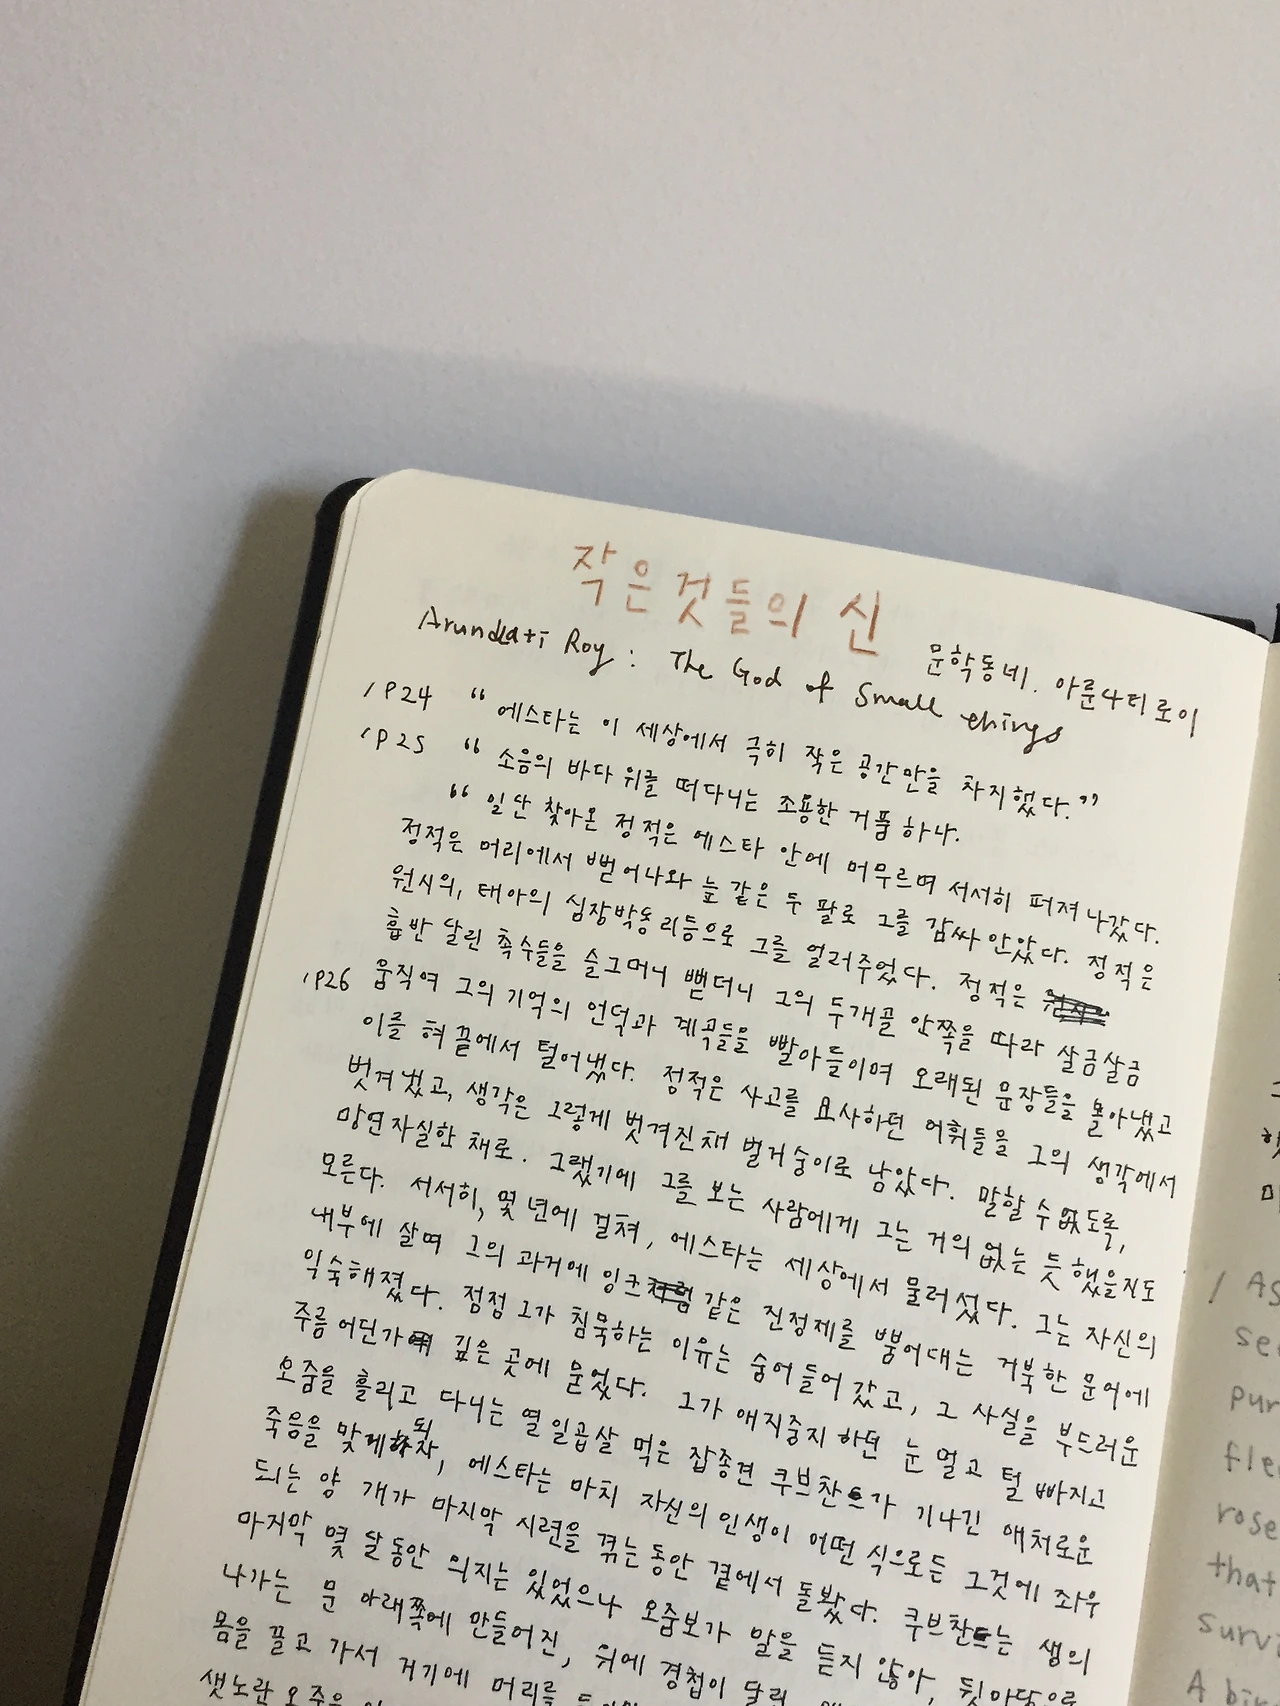 작은것들의 신
문학동네. 아룬다티 로이
Arundati Roy : The God of Small things
/P24 “에스타는 이 세상에서 극히 작은 공간만을 차지했다.”
/P25 “소음의 바다 위를 떠다니는 조용한 거품 하나.
“일단 찾아온 정적은 에스타 안에 머무르며 서서히 퍼져 나갔다.
정적은 머리에서 뻗어나와 늪 같은 두 팔로 그를 감싸 안았다. 정적은
원시의, 태아의 심장박동 리듬으로 그를 얼러주었다. 정적은
흡반 달린 촉수들을 슬그머니 뻗더니 그의 두개골 안쪽을 따라 살금살금
/P26 움직여 그의 기억의 언덕과 계곡들을 빨아들이며 오래된 문장들을 몰아냈고
이를 혀 끝에서 털어냈다. 정적은 사고를 묘사하던 어휘들을 그의 생각에서
벗겨냈고, 생각은 그렇게 벗겨진채 벌거숭이로 남았다. 말할 수 없도록,
망연자실한 채로. 그랬기에 그를 보는 사람에게 그는 거의 없는 듯 했을지도
모른다. 서서히, 몇 년에 걸쳐, 에스타는 세상에서 물러섰다. 그는 자신의
내부에 살며 그의 과거에 잉크 같은 진정제를 뿜어대는 거북한 문어에
익숙해졌다. 점점 그가 침묵하는 이유는 숨어들어 갔고, 그 사실을 부드러운
주름 어딘가 깊은 곳에 묻었다. 그가 애지중지 하던 눈 멀고 털 빠지고
오줌을 흘리고 다니는 열 일곱살 먹은 잡종견 쿠브찬가 기나긴 애처로운
죽음을 맞게되자, 에스타는 마치 자신의 인생이 어떤 식으로든 그것에 좌우
되는 양 개가 마지막 시련을 겪는동안 곁에서 돌봤다. 쿠브찬는 생의
마지막 몇 달동안 의지는 있었으나 오줌보가 말을 듣지 않아, 뒷마당으로
나가는 문 아래쪽에 만들어진, 위에 경첩이 달린
몸을 끌고 가서 거기에 머리를
샛노란 오줌을
/ AS
se
pur
fle
rose
that
survi
A bi